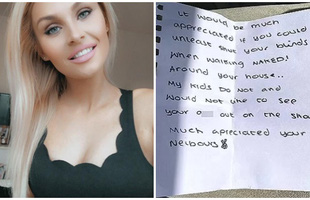 it would be much
appreciated if you could
unleast shut your blinds
when walking NAKED!
Around your house..
My kids Do not and
Would Not like to see
your a out on the sha
Much apreciated your
Neibours